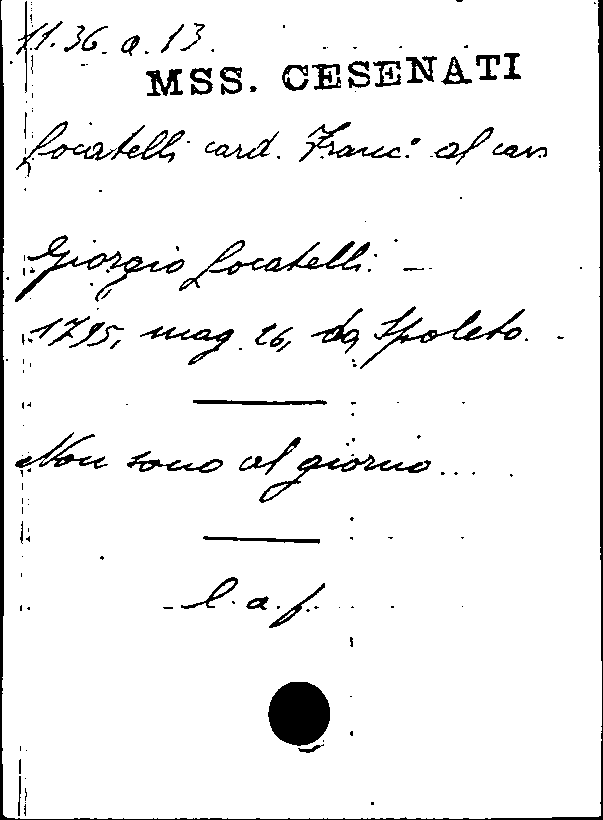 11.36.a.13.
MSS. CESENATI
Locatelli card. Franc.º al cav
Giorgio Locatelli. –
1795, mag. 26, da Spoleto. -
Non sono al giorno....
l. a. f.